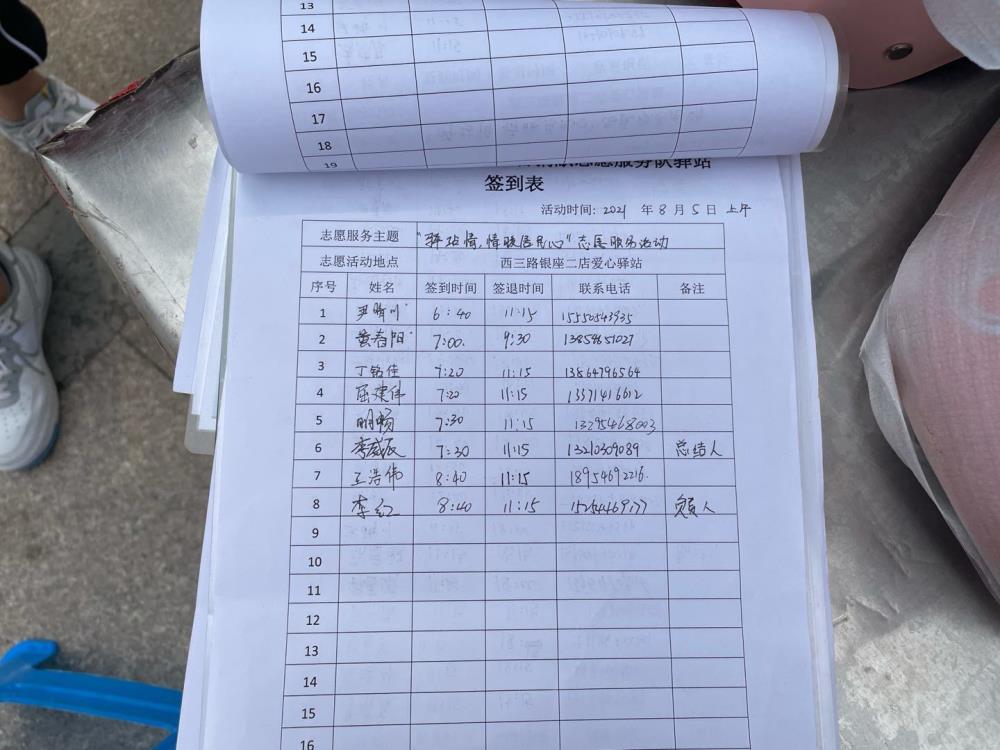 13
14
15
16
17
18
19
志愿服务队驿站
签到表
活动时间: 2021 年 8 月 5 日 上午
志愿服务主题 "驿站情,情暖居民心"志愿服务活动
志愿活动地点 西三路银座二店爱心驿站
序号 姓名 签到时间 签退时间 联系电话 备注
1 尹晴川 6:40 11:15 15550543935
2 黄春阳 7:00. 9:30 13854651027
3 丁钻佳 7:20 11:15 13864796564
4 屈建伟 7:20 11:15 13371416612
5 明畅 7:30 11:15 13295468003
6 李 7:30 11:15 13210309089 总结人
7 王浩伟 8:40 11:15 18954692216.
8 李红 8:40 11:15 15254469177 负责人
9
10
11
12
13
14
15
16